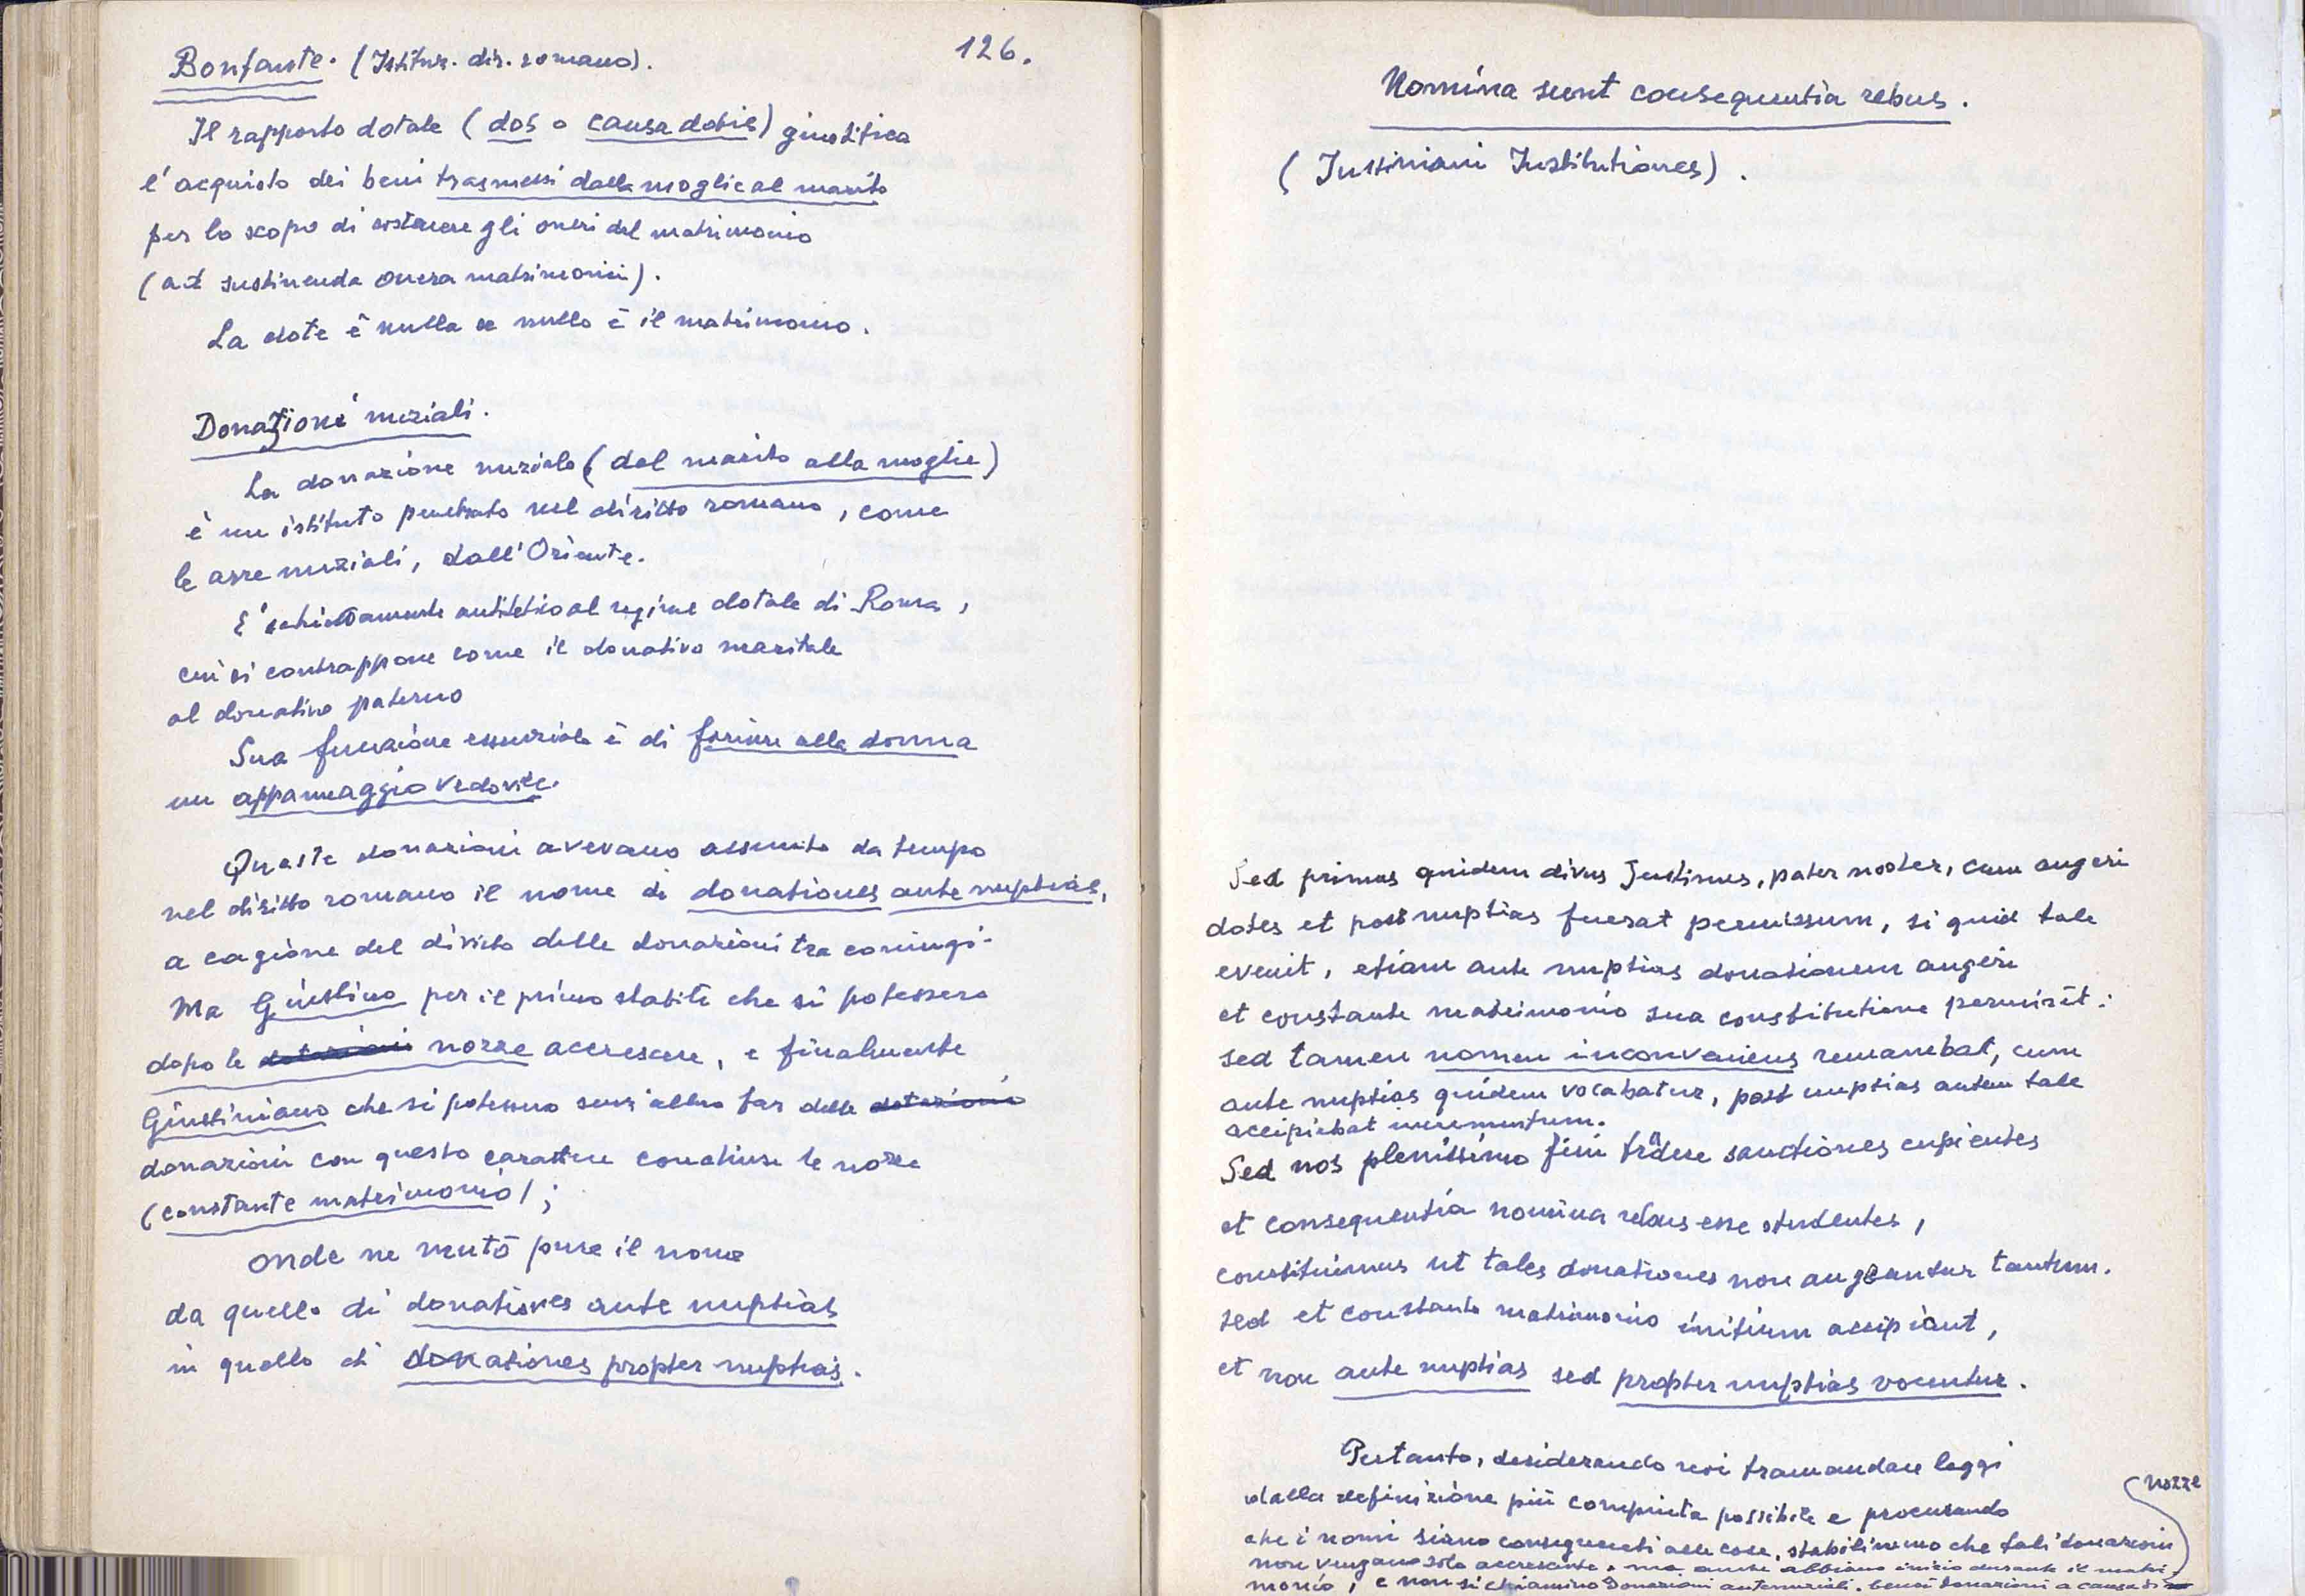 126.
Bonfante. (Istituz. dir. romano).
Il rapporto dotale (dos o causa dotis) giustifica
l'acquisto dei beni trasmessi dalla moglie al marito
per lo scopo di sostenere gli oneri del matrimonio
(ad sustinenda onera matrimonii).
La dote è nulla se nullo è il matrimonio.
Donazioni nuziali.
La donazione nuziale (dal marito alla moglie)
è un istituto penetrato nel diritto romano, come
le arre nuziali, dall'Oriente.
E' schiettamente antitetico al regime dotale di Roma,
cui si contrappone come il donativo maritale
al donativo paterno
Sua funzione essenziale è di fornire alla donna
un appannaggio vedovile.
Queste donazioni avevano assunto da tempo
nel diritto romano il nome di donationes ante nuptias,
a cagione del divieto delle donazioni tra coniugi.
Ma Giustino per il primo stabilì che si potessero
dopo le dotazioni nozze accrescere, e finalmente
Giustiniano che si potessero senz'altro far delle dotazioni
donazioni con questo carattere conchiuse le nozze
(constante matrimonio);
onde ne mutò pure il nome
da quello di donationes ante nuptias
in quello di donationes propter nuptias.
Nomina sunt consequentia rebus.
(Justiniani Institutiones).
Sed primus quidem divus Justinus, pater noster, cum augeri
dotes et post nuptias fuerat permissum, si quid tale
evenit, etiam ante nuptias donationem augeri
et constante matrimonio sua constitutione permisit:
sed tamen nomen inconveniens remanebat, cum
ante nuptias quidem vocabatur, post nuptias autem tale
accipiebat incrementum.
Sed nos plenissimo fini tradere sanctiones cupientes
et consequentia nomina rebus esse studentes,
constituimus ut tales donationes non augeantur tantum.
sed et constante matrimonio initium accipiant,
et non ante nuptias sed propter nuptias vocentur.
Pertanto, desiderando noi tramandare leggi
dalla definizione più compiuta possibile e procurando
che i nomi siano conseguenti alle cose, stabilimmo che tali donazioni
non vengano solo accresciute, ma anche abbiano inizio durante il matri-
monio, e non si chiamino donazioni antenuziali, bensì donazioni a causa di
nozze